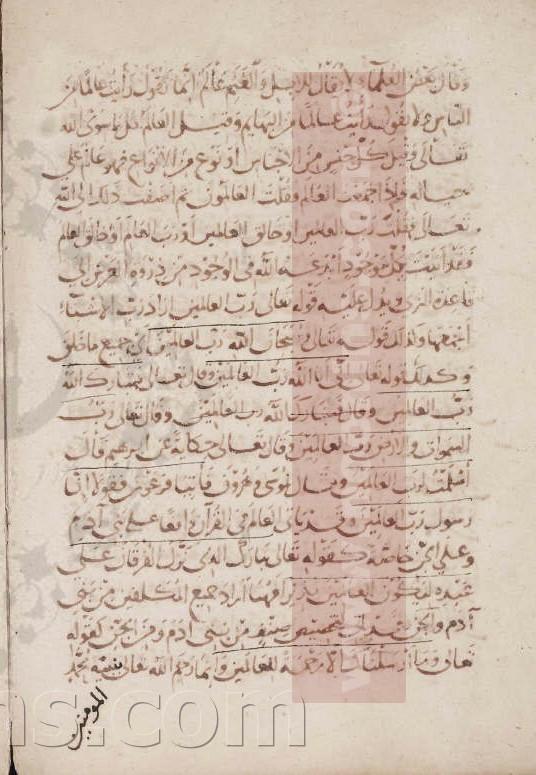 وقال بعض العلماء لا يقال للابل والغنم عالم انما تقول رأيت عالما من
الناس ولا تقول رأيت عالما من البهايم وقيل العالم كل ما سوى الله
تعالى وقيل كل جنس من الاجناس او نوع من الانواع فهو عالم على
حياله فاذا جمعت العالم وقلت العالمون ثم اضفت ذلك الى الله
تعالى فقلت رب العالمين او خالق العالمين او رب العالم او خالق العالم
فقد اثبت كل موجود ابدعه الله في الوجود من ذروة العرش الى
قاعدة الثرى ويدل عليه قوله تعالى رب العالمين اراد رب الاشياء
اجمعها وكذلك قوله تعالى وسبحان الله رب العالمين اي جميع ما خلق
وكذلك قوله تعالى اني انا الله رب العالمين وقال تعالى تبارك الله
رب العالمين وقال فتبارك الله رب العالمين وقال تعالى رب
السموات والارض رب العالمين وقال تعالى حكاية عن ابرهيم قال
اسلمت لرب العالمين وقال لموسى وهرون فاتيا فرعون فقولا انا
رسول رب العالمين وقد ياتي العالم في القرآن واقعا على بني آدم
وعلى الجن خاصة كقوله تعالى تبارك الذي نزل الفرقان على
عبده ليكون للعالمين نذيرا فهنا اراد جميع المكلفين من بني
آدم والجن صنف من بني ادم ومن الجن كقوله
تعالى وما ارسلناك الا رحمة للعالمين وانما رحم الله تعالى بنبيه محمد
المومنين
ns.com